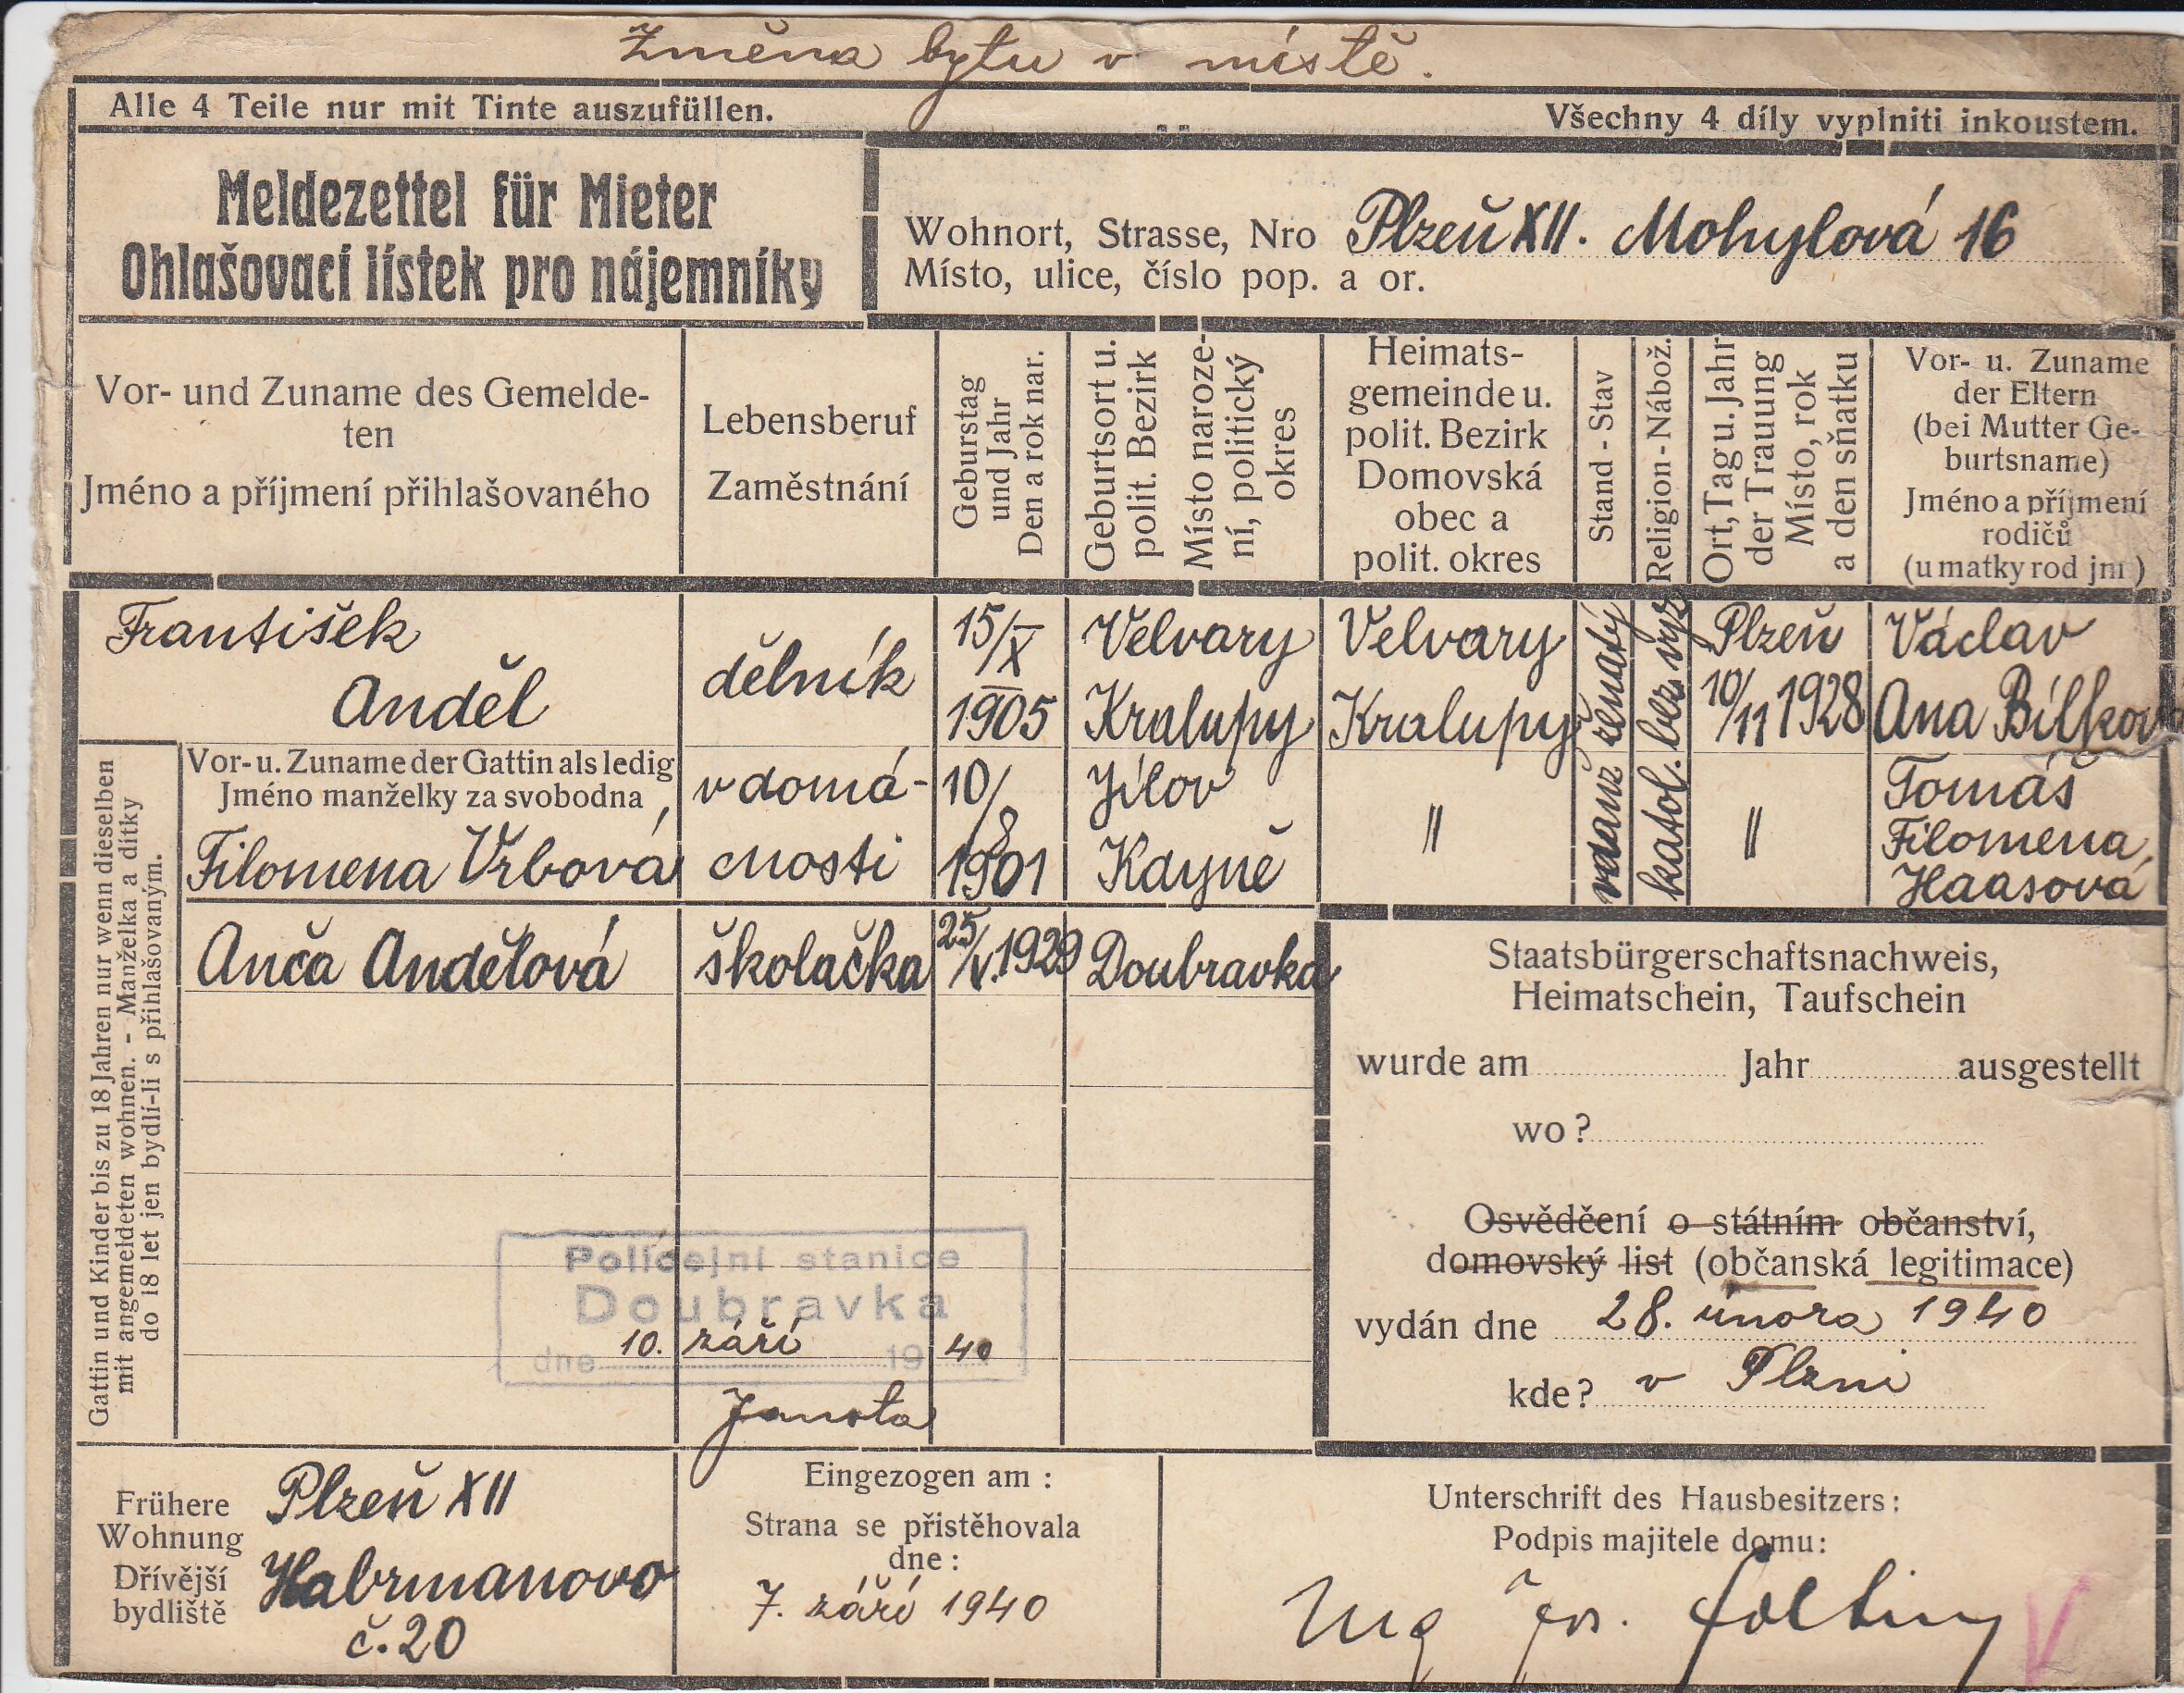 Změna bytu v místě.
Alle 4 Teile nur mit Tinte auszufüllen.
Všechny 4 díly vyplniti inkoustem.
Meldezettel für Mieter
Ohlašovací lístek pro nájemníky
Wohnort, Strasse, Nro Plzeň XII. Mohylová 16
Místo, ulice, číslo pop. a or.
Vor- und Zuname des Gemelde-
ten
Jméno a příjmení přihlašovaného
Lebensberuf
Zaměstnání
Geburstag
und Jahr
Den a rok nar.
Geburtsort u.
polit. Bezirk
Místo naroze-
ní, politický
okres
Heimats-
gemeinde u.
polit. Bezirk
Domovská
obec a
polit. okres
Stand - Stav
Religion - Nábož.
Ort, Tag u. Jahr
der Trauung
Místo, rok
a den sňatku
Vor- u. Zuname
der Eltern
(bei Mutter Ge-
burtsname)
Jméno a příjmení
rodičů
(u matky rod jm)
František
Anděl
dělník
15/X
1905
Velvary
Kralupy
Velvary
Kralupy
ženatý
bez vyz
Plzeň
10/11 1928
Václav
Ana Bílkov
Gattin und Kinder bis zu 18 Jahren nur wenn dieselben
mit angemeldeten wohnen. - Manželka a dítky
do 18 let jen bydlí-li s přihlašovaným.
Vor- u. Zuname der Gattin als ledig
Jméno manželky za svobodna
Filomena Vrbová
v domá-
cnosti
10/8
1901
Jílov
Kayně
"
vdaná
katol.
"
Tomáš
Filomena
Haasová
Anča Andělová
školačka
25/V. 1929
Doubravka
Staatsbürgerschaftsnachweis,
Heimatschein, Taufschein
wurde am Jahr ausgestellt
wo?
Osvědčení o státním občanství,
domovský list (občanská legitimace)
vydán dne 28. února 1940
kde? v Plzni
Policejní stanice
Doubravka
dne 10. září 19 40
Janota
Frühere
Wohnung
Dřívější
bydliště
Plzeň XII
Habrmanovo
č. 20
Eingezogen am:
Strana se přistěhovala
dne:
7. září 1940
Unterschrift des Hausbesitzers:
Podpis majitele domu:
Ing Jos.